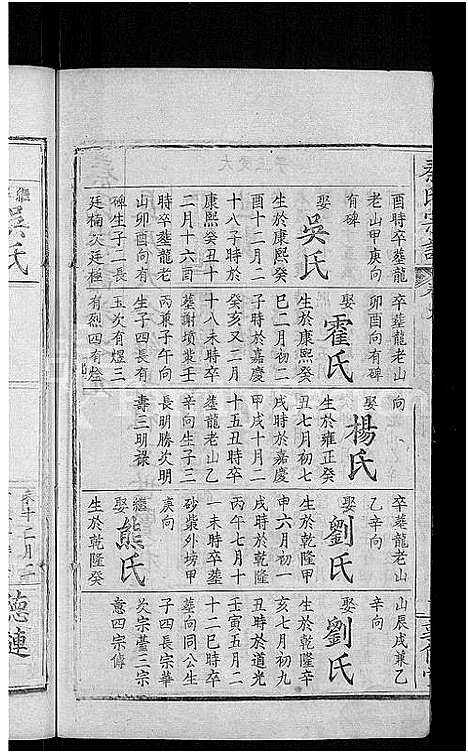 酉時卒塟龍
老山甲庚向
有碑
娶吳氏
生於康熙癸
酉十二月二
十八子時於
康熙癸丑十
二月十六酉
時卒塟龍老
山卯酉向有
碑生子二長
廷楠次廷極
卒塟龍老山
卯酉向有碑
娶霍氏
生於康熙癸
巳二月初二
子時於嘉慶
癸亥又二月
十八未時卒
塟謝墳漿壬
丙兼子午向
生子四長有
玉次有煜三
有烈四有燈
向
娶楊氏
生於雍正癸
丑七月初七
戌時於嘉慶
甲戌十月二
十五丑時卒
塟龍老山乙
辛向生子三
長明勝次明
壽三明祿
卒塟龍老山
乙辛向
娶劉氏
生於乾隆甲
申六月初一
戌時於乾隆
丙午七月十
一未時卒塟
砂柴外坊甲
庚向
繼娶熊氏
生於乾隆癸
山辰戌兼乙
辛向
娶劉氏
生於乾隆辛
亥七月初九
丑時於道光
壬寅五月二
十二巳時卒
塟向同公生
子四長宗華
次宗臺三宗
意四宗傳
吳氏
德連